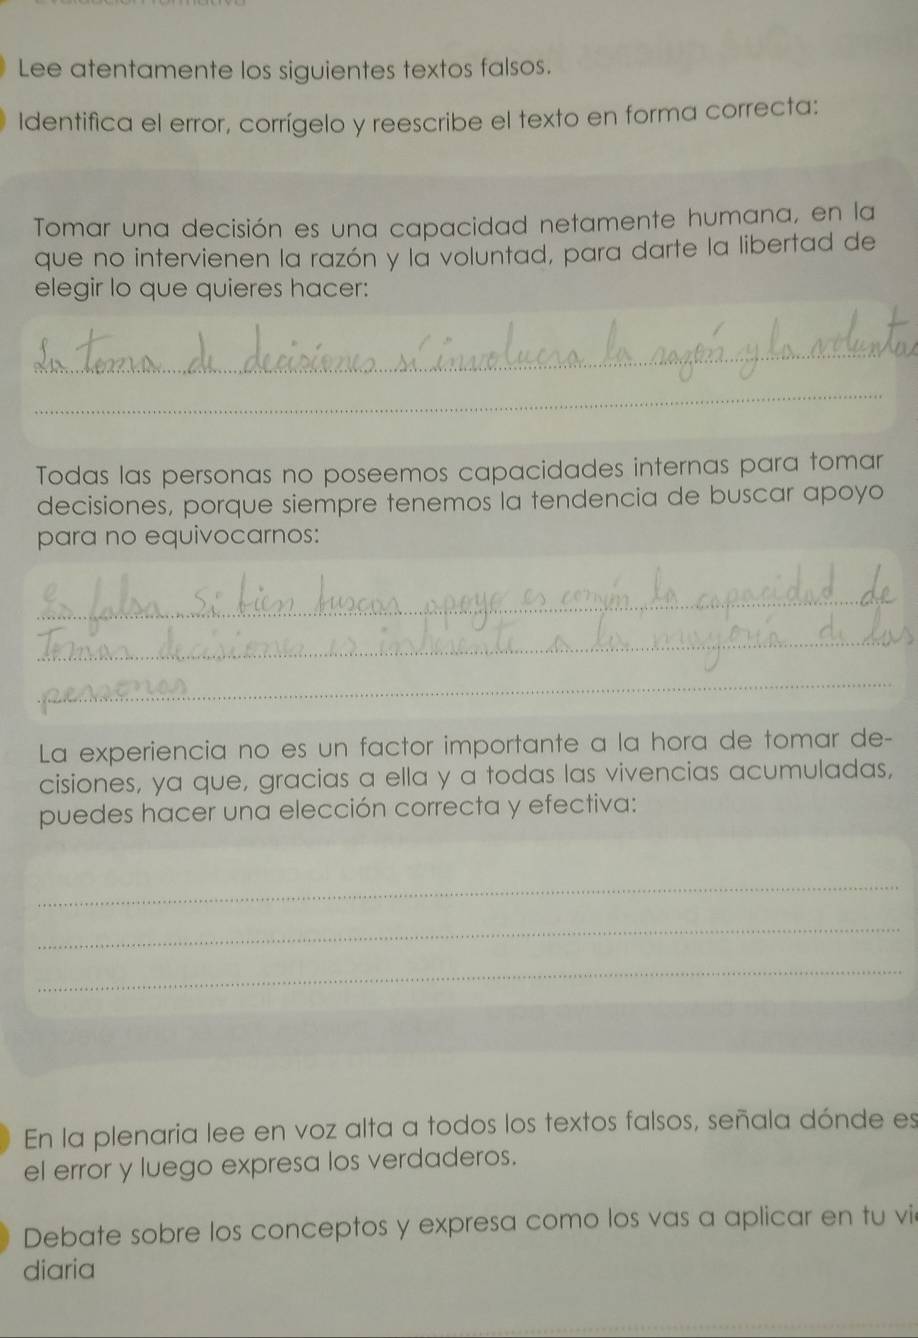 Lee atentamente los siguientes textos falsos.
Identifica el error, corrígelo y reescribe el texto en forma correcta:
Tomar una decisión es una capacidad netamente humana, en la
que no intervienen la razón y la voluntad, para darte la libertad de
elegir lo que quieres hacer:
La toma de decisiones sí involucra la razón y la voluntad
Todas las personas no poseemos capacidades internas para tomar
decisiones, porque siempre tenemos la tendencia de buscar apoyo
para no equivocarnos:
Es falsa si bien buscar apoyo es común, la capacidad de
Tomar decisiones es inherente a la mayoría de las
personas
La experiencia no es un factor importante a la hora de tomar de-
cisiones, ya que, gracias a ella y a todas las vivencias acumuladas,
puedes hacer una elección correcta y efectiva:
En la plenaria lee en voz alta a todos los textos falsos, señala dónde es
el error y luego expresa los verdaderos.
Debate sobre los conceptos y expresa como los vas a aplicar en tu vi
diaria